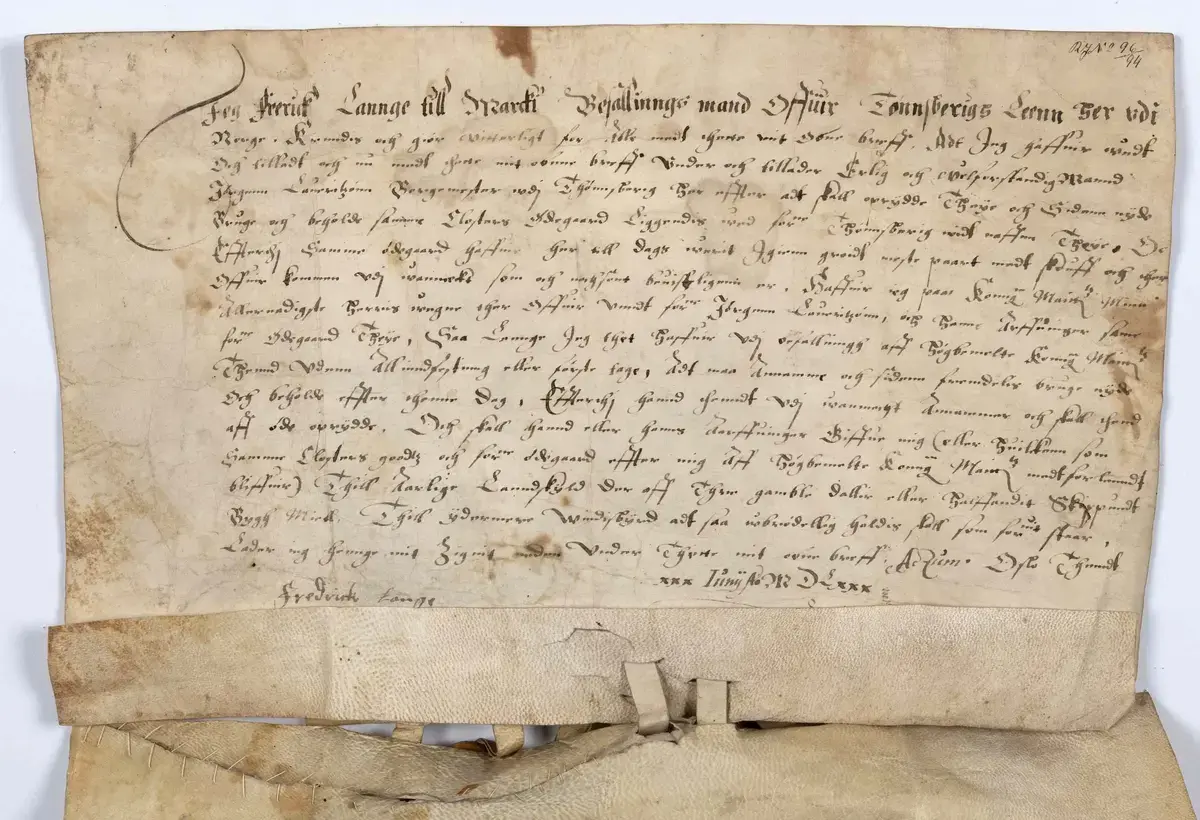 RJ Nº 96/94
Jeg Frerick Lannge till Marcki Befallinngs mand Offuir Tønnsbergs Leenn her vdi
Norge, Kiendis och giør witterligt for Alle medt thette mit Obne breff, Adt Jeg haffuir vndt
Och tilladt och nu medt thette mit obne breff Vnder och tillader Erlig och welforstandig Mannd
Jørgenn Lauritzønn Borgemester vdj Thønnsberig her effter adt skall oprydde Theye och Sidenn nyde
Bruge och beholde samme Closters Ødegaard Liggendis wed forne Thønnsberig widt naffnn Theye,
Effterthj Samme ødegaard haffuir her till dags werit Igienn groidt meste paart medt skouff och
Offuir kommen vdj wannmackt som och nochsom beuisligenn er, Haffuir ieg paa Konng Maitz Minn
Allernadigste Herris wegne ther Offuir vundt forne Jørgenn Lauritzønn, och hans Arffuinger same
forne Ødegaard Theye, Saa Lannge Jeg thet haffuir vdj befallinngh aff Høgbemelte Konng Maitz
Thennd vdenn All Indfestning eller første tage, Adt maa Annamme och sidenn fremdelis bruge nyde
Och beholde effter thenne Dag, Effterthj hannd thennd vdj wanmacht Annammer och skall thend
aff øde oprydde, Och skall hannd eller hanns Aarffuinger Giffue mig (eller huilkenn som
Samme Closters goedtz och forne ødegaard effter mig Aff Høgbemelte Konng Maitz medt forlenndt
bliffuir) Thill Aarlige Lanndskyld der aff Thre gamble daller eller halffandit Skippundt
Bygh Miell, Thill ydermere Windisbyrd adt saa vbrødellig holdis skall som foruit staar,
Lader ieg hennge mit Zignit neden Vnder Thette mit obne breff, Actum Oslo Thendt
xxx Junij Ao M D Lxxx
Fredrick Lange